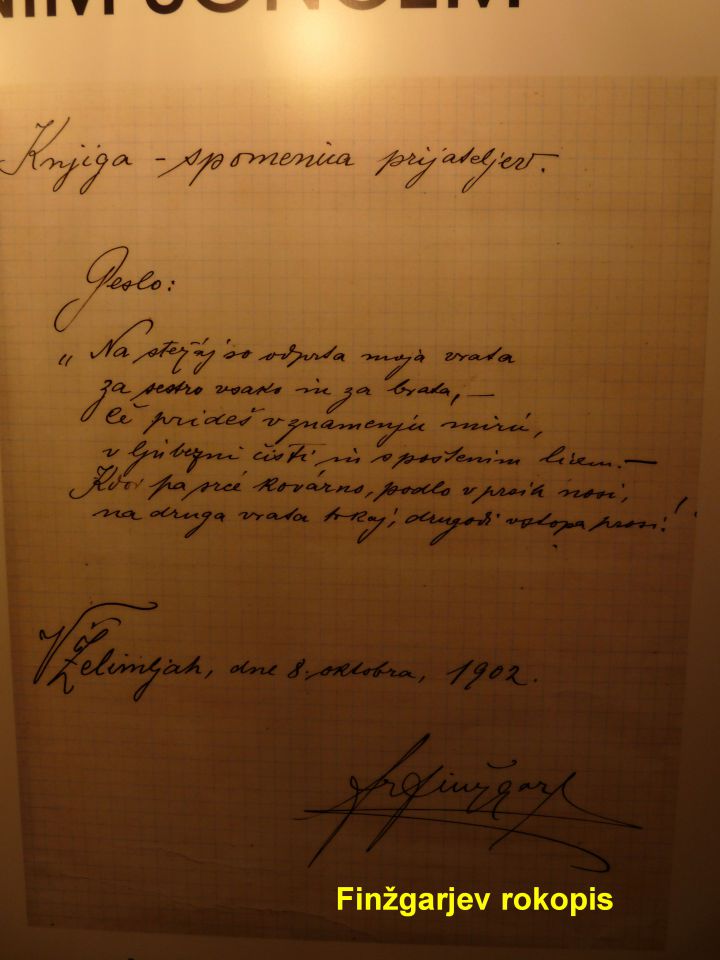 NIM JONCEM
Knjiga - spomenica prijateljev.
Geslo:
„ Na stežáj so odprta moja vrata
za sestro vsako in za brata, –
če prideš v znamenju mirú,
v ljubezni čisti in s poštenim licem. –
Kdor pa srcé kovárno, podlo v prsih nosi,
na druga vrata trkaj, drugodi vstopa prosi!"
V Želimljah, dne 8. oktobra, 1902.
Fr Finžgar
Finžgarjev rokopis